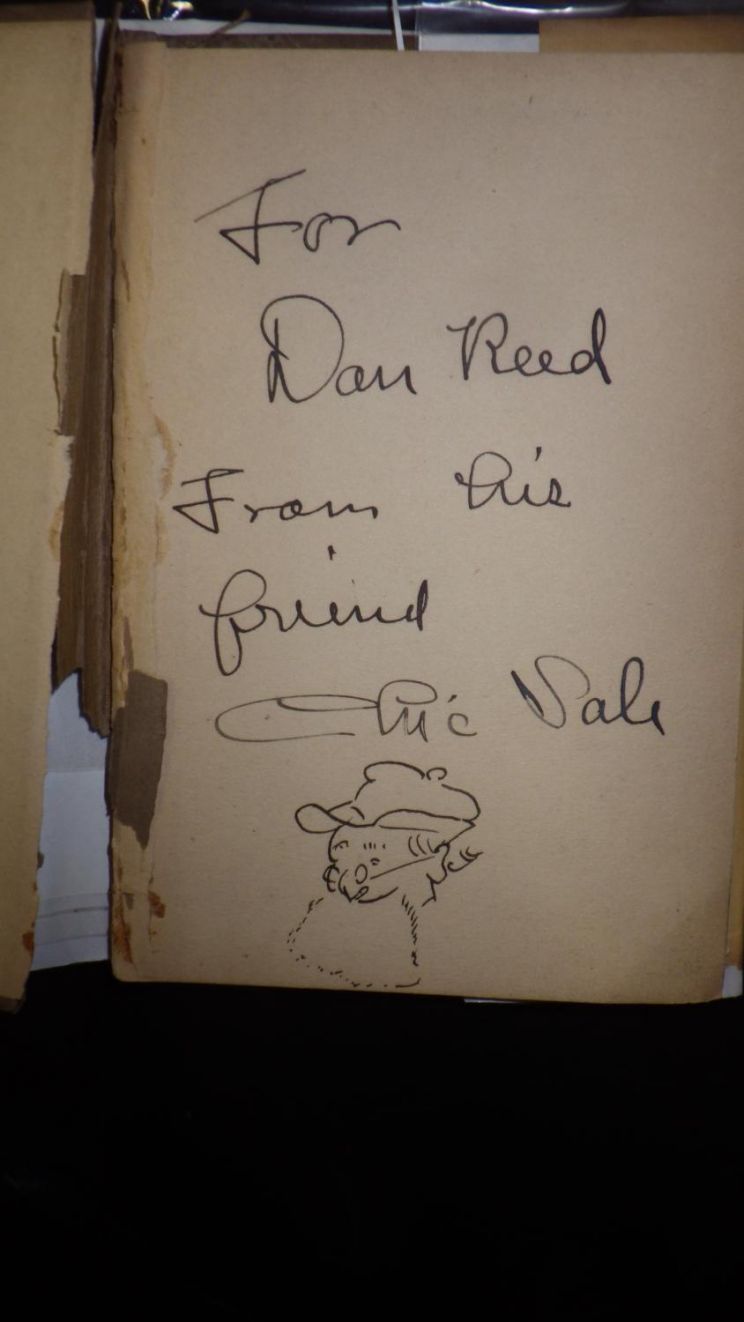 For
Dan Reed
From his
friend
Chic Sale